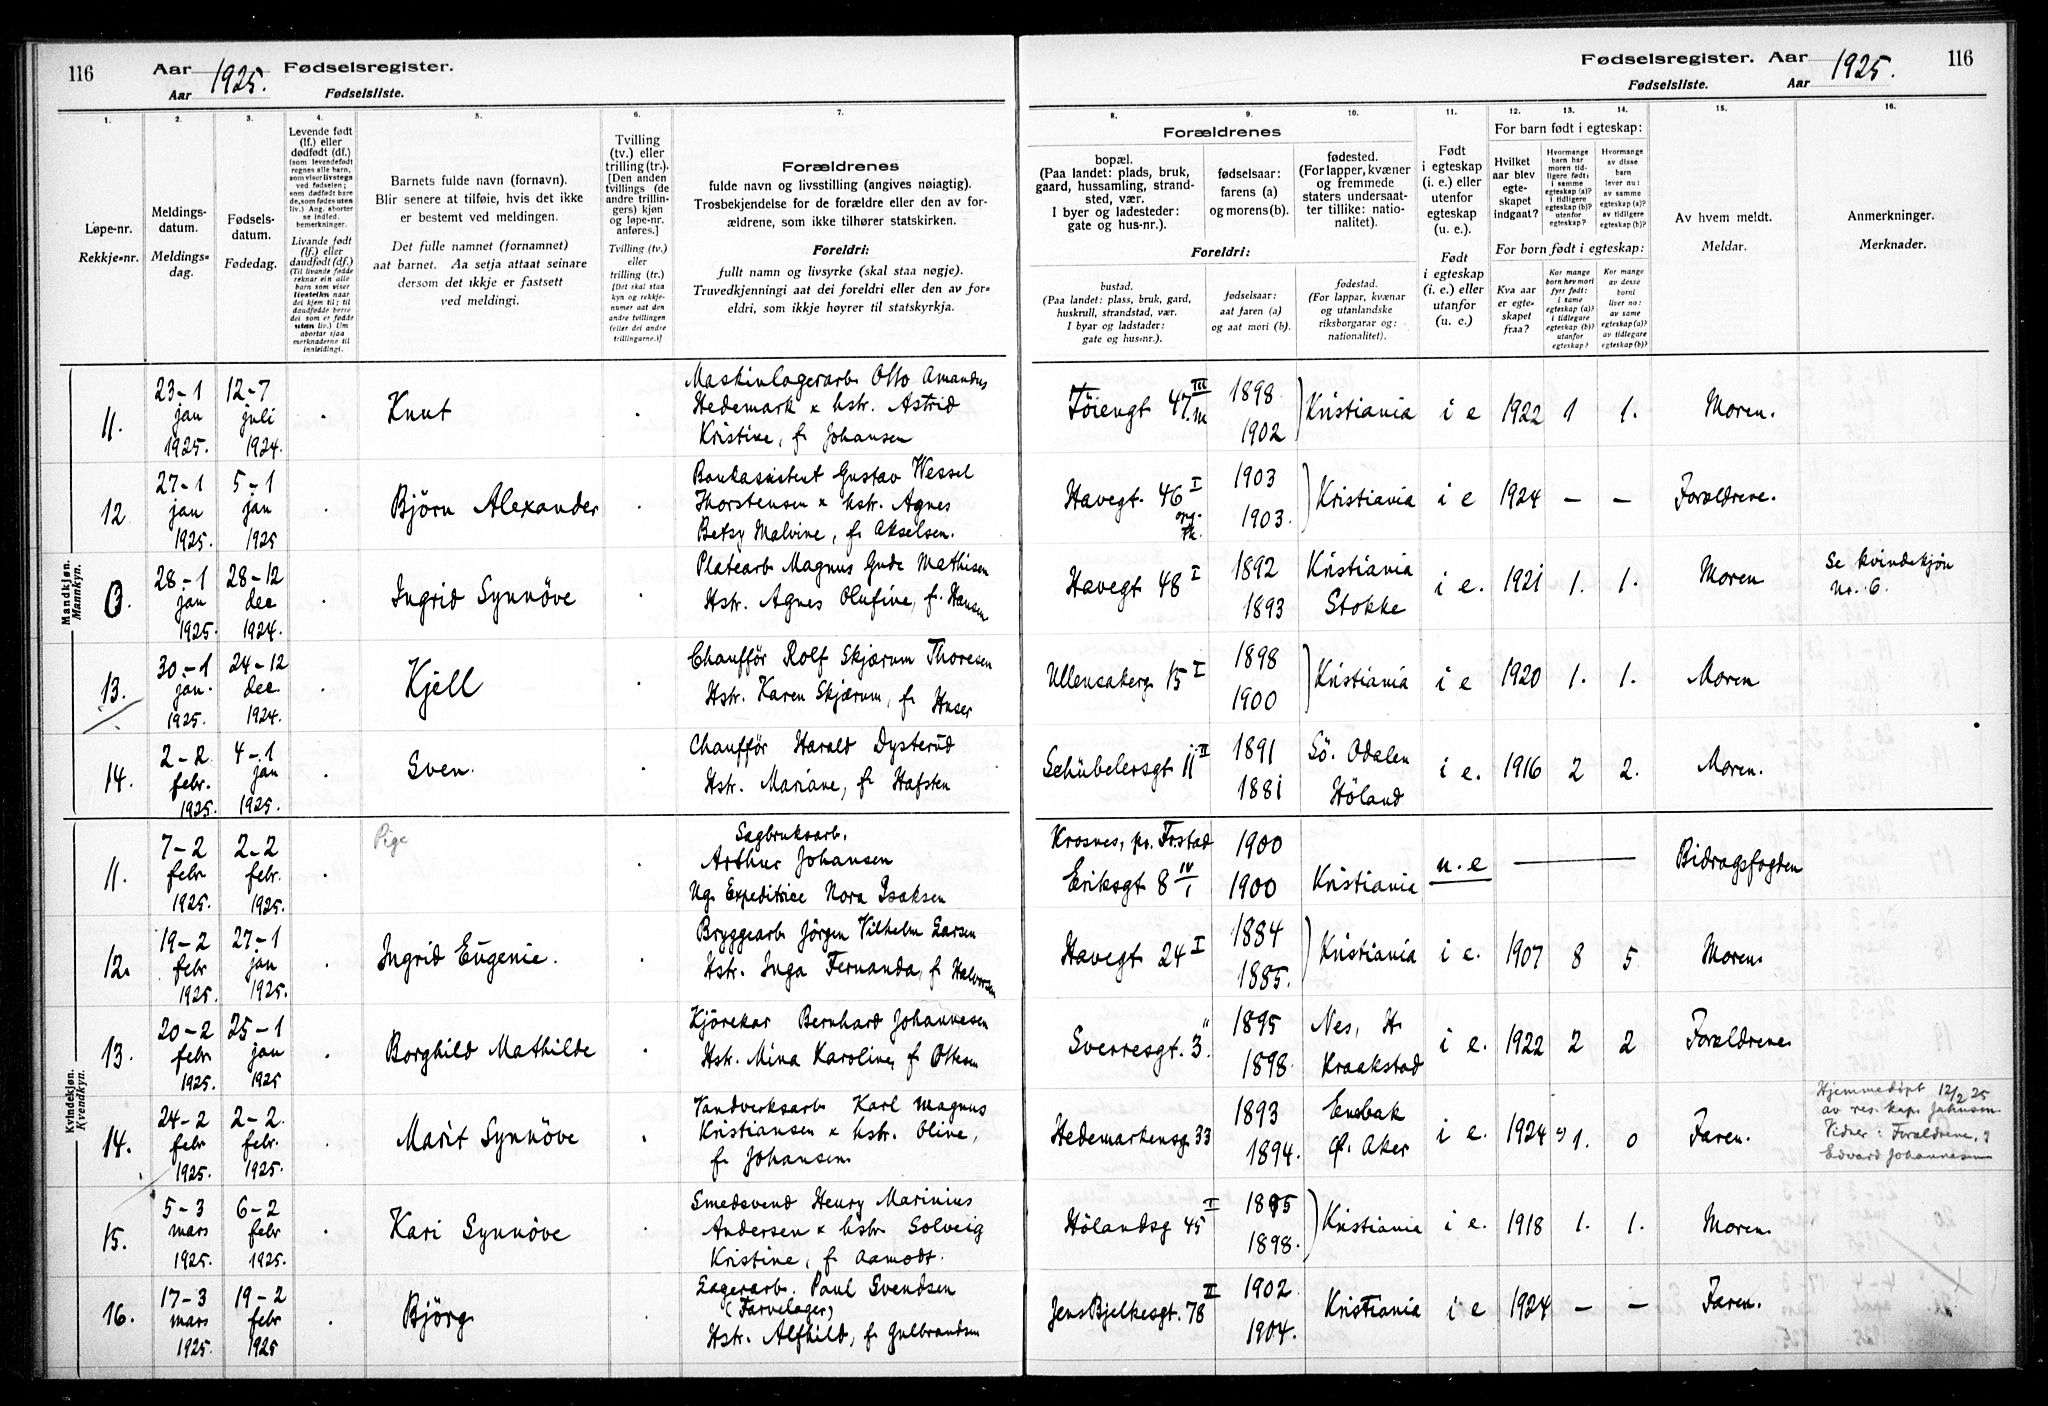 116 Aar 1925. Fødselsregister.
Aar Fødselsliste.
Fødselsregister. Aar 1925. 116
Fødselsliste. Aar
1. 2. 3. 4. 5. 6. 7.
Løpe-nr.
Rekkje-nr.
Meldings-
datum.
Meldings-
dag.
Fødsels-
datum.
Fødedag.
Levende født
(lf.) eller
dødfødt (df.)
(som levendefødt
regnes alle barn,
som viser livstegn
ved fødselen;
som dødfødt bare
de, som fødes uten
liv.) Ang. aborter
se indled.
bemerkninger.
Livande født
(lf.) eller
daudfødt (df.)
(Til livande fødde
reknar ein alle
barn som viser
livsteikn naar
dei kjem til; til
daudfødde berre
dei som er fødde
utan liv.) Um
abortar sjaa
merknaderne til
innleidingi.
Barnets fulde navn (fornavn).
Blir senere at tilføie, hvis det ikke
er bestemt ved meldingen.
Det fulle namnet (fornamnet)
aat barnet. Aa setja attaat seinare
dersom det ikkje er fastsett
ved meldingi.
Tvilling
(tv.) eller
trilling (tr.).
[Den anden
tvillings (de
andre trillin-
gers) kjøn
og løpe-nr.
anføres.]
Tvilling (tv.)
eller
trilling (tr.)
[Det skal staa
kyn og rekkje-
numer aat den
andre tvillingen
(eller dei andre
trillingarne.)]
Forældrenes
fulde navn og livsstilling (angives nøiagtig).
Trosbekjendelse for de forældre eller den av for-
ældrene, som ikke tilhører statskirken.
Foreldri:
fullt namn og livsyrke (skal staa nøgje).
Truvedkjenningi aat dei foreldri eller den av for-
eldri, som ikkje høyrer til statskyrkja.
8. 9. 10. 11. 12. 13. 14. 15. 16.
Forældrenes
bopæl.
(Paa landet: plads, bruk,
gaard, hussamling, strand-
sted, vær.
I byer og ladesteder:
gate og hus-nr.).
fødselsaar:
farens (a)
og morens (b).
fødested.
(For lapper, kvæner
og fremmede
staters undersaat-
ter tillike: natio-
nalitet).
Foreldri:
bustad.
(Paa landet: plass, bruk, gard,
huskrull, strandstad, vær.
I byar og ladstader:
gate og hus-nr.).
fødselsaar:
aat faren (a)
og aat mori (b).
fødestad.
(For lappar, kvænar
og utanlandske
riksborgarar og:
nationalitet).
Født
i egteskap
(i. e.) eller
utenfor
egteskap
(u. e.).
Født
i egteskap
(i. e.) eller
utanfor
(u. e.)
For barn født i egteskap:
Hvilket
aar blev
egte-
skapet
indgaat?
Hvormange
barn har
moren tid-
ligere født:
i samme
egteskap (a)?
i tidligere
egteskap (b)?
utenfor
egteskap?
Hvormange
av disse
barn
lever nu:
av samme
egteskap (a)?
av tidligere
egteskap (b)?
For born født i egteskap:
Kva aar
er egte-
skapet
fraa?
Kor mange
born hev mori
fyrr født:
i same
egteskap (a)?
i tidlegare
egteskap (b)?
utanfor
egteskap?
Kor mange
av desse
borni
liver no:
av same
egteskap (a)?
av tidlegare
egteskap (b)?
Av hvem meldt.
Meldar.
Anmerkninger.
Merknader.
Mandkjøn.
Mannkyn.
11. 23-1 jan 1925. 12-7 juli 1924. Knut
Maskinlagerarb Otto Amandus
Hedemark x hstr. Astrid
Kristine, f. Johansen
Töiengt 47 III 1898 1902 Kristiania i e 1922 1 1. Moren.
12 27-1 jan 1925. 5-1 jan 1925 Björn Alexander
Bankassistent Gustav Wessel
Thorstensen x hstr. Agnes
Betsy Malvine, f. Akselsen.
Havegt. 46 I 1903 1903. Kristiania i e 1924 — — Forældrene.
0. 28-1 jan 1925. 28-12 dec 1924. Ingrid Synnöve
Platearb Magnus Gude Mathisen
Hstr. Agnes Olufine, f. Hansen
Havegt 48 I 1892 Kristiania 1893 Stokke i e. 1921 1. 1. Moren
Se kvindekjön
nr. 6.
13. 30-1 jan. 1925. 24-12 dec. 1924. Kjell
Chaufför Rolf Skjærum Thoresen
Hstr. Karen Skjærum, f. Huser
Ullensakerg 15 I 1898 1900 Kristiania i e 1920 1. 1. Moren
14. 2-2 febr. 1925. 4-1 jan 1925. Sven.
Chaufför Harald Dysterud
Hstr. Mariane, f. Hafsten
Schübelersgt 11 II 1891 Sö. Odalen 1881 Höland i e. 1916 2 2. Moren.
Kvindekjøn.
Kvendkyn.
11. 7-2 febr 1925. 2-2 febr. 1925. Pige
Sagbruksarb.
Arthur Johansen
Ug. Expeditrice Nora Isaksen
Krosnes, pr. Fr.stad 1900
Eriksgt 8 IV/1 1900 Kristiania u. e — Bidragsfogden
12. 19-2 febr 1925. 27-1 jan 1925. Ingrid Eugenie.
Bryggearb Jörgen Vilhelm Larsen
Hstr. Inga Fernanda, f. Halvorsen
Havegt 24 I 1884 1885. Kristiania i e. 1907 8 5. Moren
13. 20-2 febr 1925. 25-1 jan 1925 Borghild Mathilde
Kjörekar Bernhard Johannesen
Hstr. Mina Karoline, f. Ottesen
Sverresgt. 3. 1895 Nes, H. 1898. Kraakstad i e. 1922 2 2 Forældrene
14. 24-2 febr 1925. 2-2. febr. 1925. Marit Synnöve
Vandverksarb Karl Magnus
Kristiansen x hstr. Oline,
f. Johansen
Hedemarkensg 33 1893 Enebak 1894. Ø. Aker i e. 1924 1. 0 Faren.
Hjemmedöpt 12/2 25
av res. kap. Jahnsen
Vidner: Forældrene,
Edvard Johannesen
15. 5-3 mars 1925. 6-2 febr 1925. Kari Synnöve
Smedsvend Henry Marinius
Andersen x hstr Solveig
Kristine, f. Aamodt.
Hölandsg 45 I 1895 1898. Kristiania i e. 1918 1. 1. Moren
16. 17-3 mars 1925. 19-2 febr 1925 Björg
Lagerarb. Paul Svendsen
(Farvelager)
Hstr. Alfhild, f. Gulbrandsen
Jens Bjelkesgt. 78 II 1902 1904. Kristiania i e 1924 — — Faren.